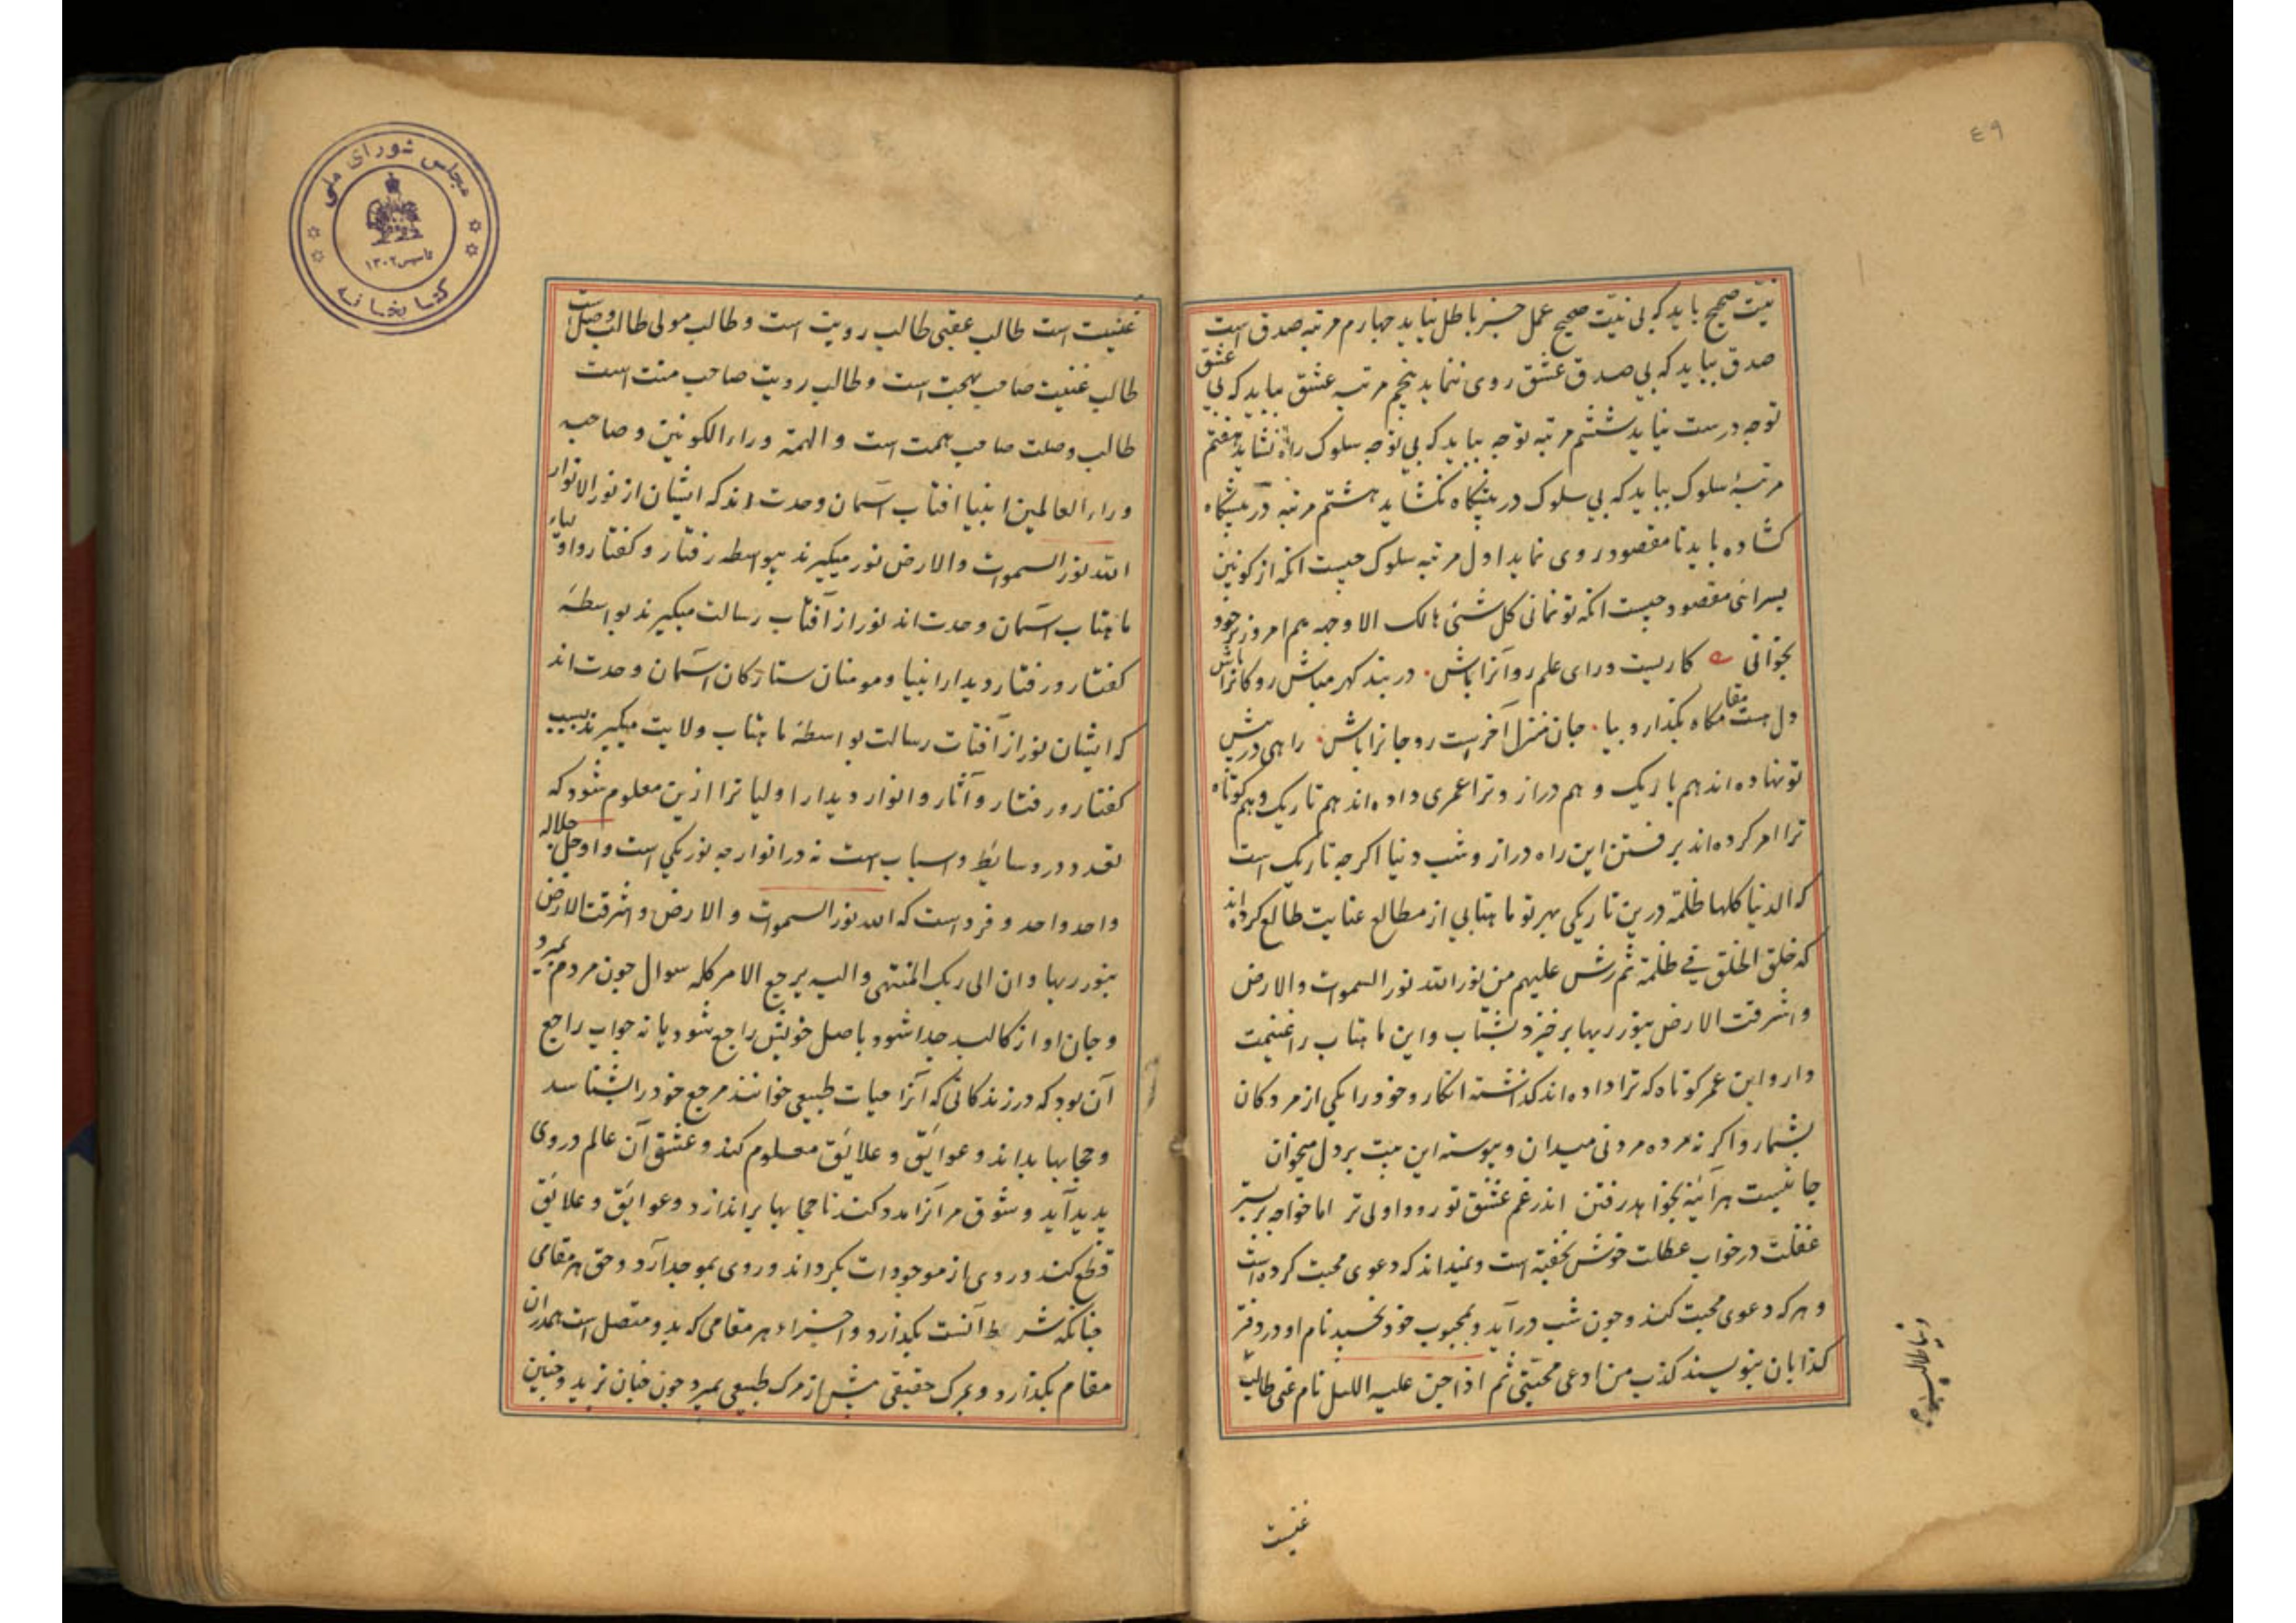 ٤٩
نیت صحیح باید که بی نیت صحیح عمل جز باطل نیاید چهارم مرتبه صدق است
صدق بباید که بی صدق عشق روی ننماید پنجم مرتبه عشق بباید که بی عشق
توجه درست نیاید ششم مرتبه توجه بباید که بی توجه سلوک راه نشاید هفتم
مرتبهٔ سلوک بباید که بی سلوک در پیشگاه نگشاید هشتم مرتبه در پیشگاه
گشاده باید تا مقصود روی نماید اول مرتبه سلوک چیست آنکه از کونین
بسر آئی مقصود چیست آنکه تو نمانی کل شئی هالک الا وجهه هم امروز بر خود
بخوانی کاریست ورای علم رو آنرا باش در بند گهر مباش رو کانرا باش
دل هست مقامگاه بگذار و بیا جان منزل آخر است رو جانرا باش راهی در پیش
تو نهاده اند هم باریک و هم دراز و ترا عمری داده اند هم تاریک و هم کوتاه
ترا امر کرده اند برفتن این راه دراز و شب دنیا اگرچه تاریک است
که الدنیا کلها ظلمة درین تاریکی بهر تو ماهتابی از مطالع عنایت طالع کرده اند
که خلق الخلق فی ظلمة ثم رش علیهم من نور الله نور السموات والارض
واشرقت الارض بنور ربها برخیز و بشتاب و این ماهتاب را غنیمت
دار و این عمر کوتاه که ترا داده اند گذشته انگار و خود را یکی از مردگان
بشمار و اگر نه مرده مردنی میدان و پیوسته این بیت بر دل میخوان
جانیست هر آئینه بخواهد رفتن اندر غم عشق تو رود اولی تر اما خواجه بر بستر
غفلت در خواب عطلت خوش بخفته است و نمیداند که دعوی محبت کرده است
و هر که دعوی محبت کند و چون شب درآید و بمحبوب خود نخسبد نام او در دفتر
کذابان بنویسند کذب من ادعی محبتی ثم اذا جن علیه اللیل نام عنی طالب
غنیست
مجلس شورای ملی
تاسیس ۱۳۰۲
کتابخانه
غنیت است طالب عقبی طالب رویت است و طالب مولی طالب وصلت
طالب غنیت صاحب بهجت است و طالب رویت صاحب منت است
طالب وصلت صاحب همت است و الهمة وراء الکونین و صاحب
وراء العالمین انبیا افتاب آسمان وحدت اند که ایشان از نور الانوار
الله نور السموات والارض نور میگیرند بواسطه رفتار و گفتار و اولیاء
ماهتاب آسمان وحدت اند نور از آفتاب رسالت میگیرند بواسطهٔ
گفتار و رفتار و دیدار انبیا و مومنان ستارگان آسمان وحدت اند
که ایشان نور از آفتاب رسالت بواسطهٔ ماهتاب ولایت میگیرند بسبب
گفتار و رفتار و آثار و انوار و دیدار اولیا ترا ازین معلوم شود که
تعدد در وسایط و اسباب است نه در انوار چه نور یکی است و او جل جلاله
واحد واحد و فرد است که الله نور السموات والارض واشرقت الارض
بنور ربها وان الی ربک المنتهی والیه یرجع الامر کله سوال چون مردم بمیرد
و جان او از کالبد جدا شود باصل خویش راجع شود یا نه جواب راجع
آن بود که در زندگانی که آنرا حیات طبیعی خوانند مرجع خود را بشناسد
و حجابها بداند و عوایق و علایق معلوم کند و عشق آن عالم در وی
پدید آید و شوق مر آنرا مدد کند تا حجابها براندازد و عوایق و علایق
قطع کند و روی از موجودات بگرداند و روی بموجد آرد و حق هر مقامی
چنانکه شرط آنست بگذارد و اجزاء هر مقامی که بدو متصل است بمدران
مقام بگذارد و بمرگ حقیقی پیش از مرگ طبیعی بمیرد چون چنان زید و چنین